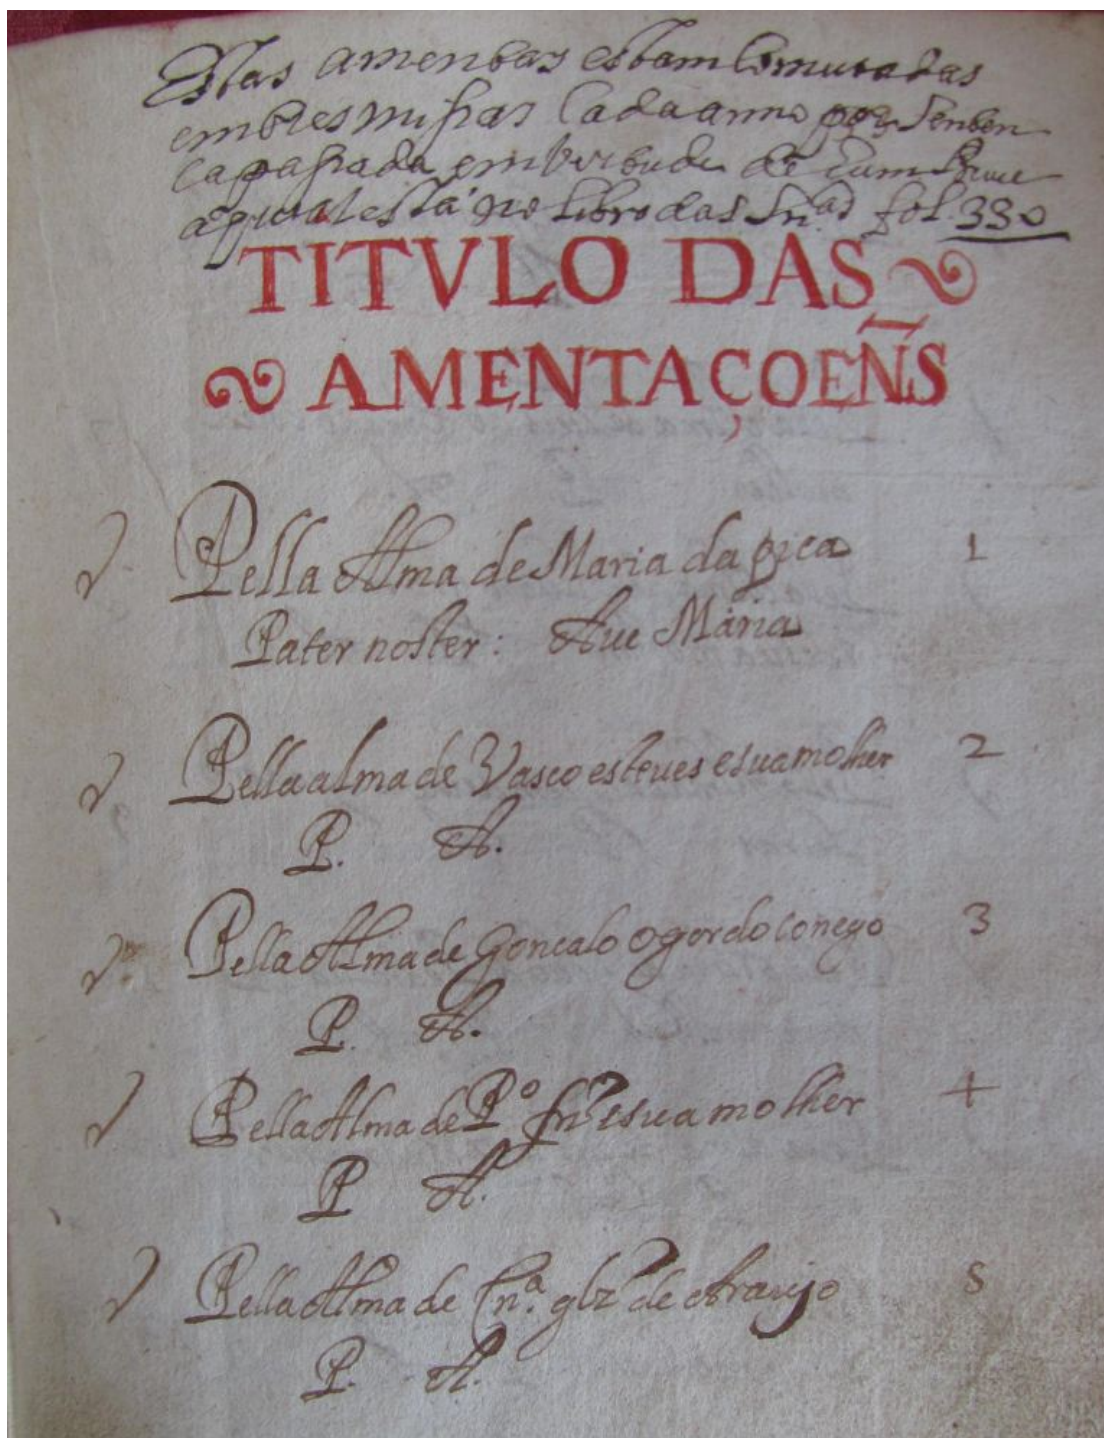 Estas amentas estam Comutadas
em tres missas Cada anno por Senten
ca passada em virtude de hum Breue
aqual está no Libro das Snãs fol. 330
TITVLO DAS
AMENTAÇOEÑS
Pella Alma de Maria da pica 1
Pater noster: Aue Maria
Pella alma de Vasco esteues e sua molher 2
P. A.
Pella Alma de Goncalo o gordo conego 3
P. A.
Pella Alma de P.º frz e sua molher 4
P A.
Pella Alma de Cn.ª glz de Araujo 5
P. A.